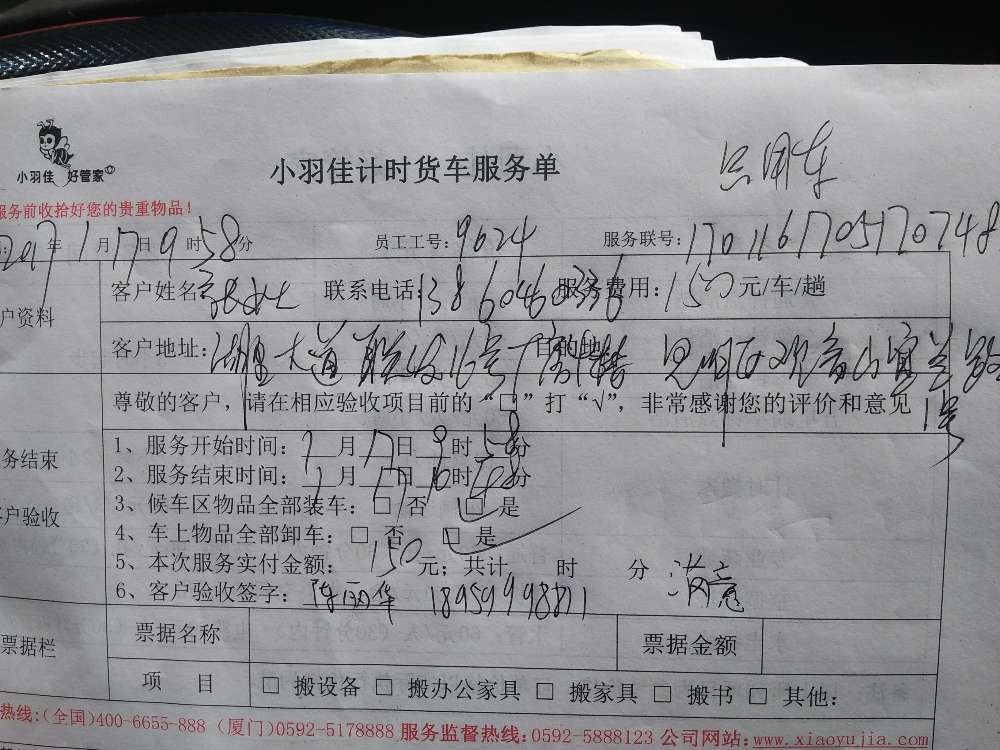 小羽佳 好管家
小羽佳计时货车服务单
只用车
服务前收拾好您的贵重物品！
2017年1月17日9时58分 员工工号：9624 服务联号：1701161705170748
户资料
客户姓名 联系电话：13860460336 服务费用：150元/车/趟
客户地址：湖里大道 16号厂房 目的地 思明区观音山宜兰路1号
尊敬的客户，请在相应验收项目前的“□”打“√”，非常感谢您的评价和意见
务结束
客户验收
1、服务开始时间：1月17日9时58分
2、服务结束时间：1月17日10时48分
3、候车区物品全部装车：□否 □是
4、车上物品全部卸车：□否 □是
5、本次服务实付金额：150元；共计 时 分 满意
6、客户验收签字：陈丽华
票据栏
票据名称 票据金额
项 目 □搬设备 □搬办公家具 □搬家具 □搬书 □其他：
热线：(全国)400-6655-888 (厦门)0592-5178888 服务监督热线：0592-5888123 公司网站：www.xiaoyujia.com